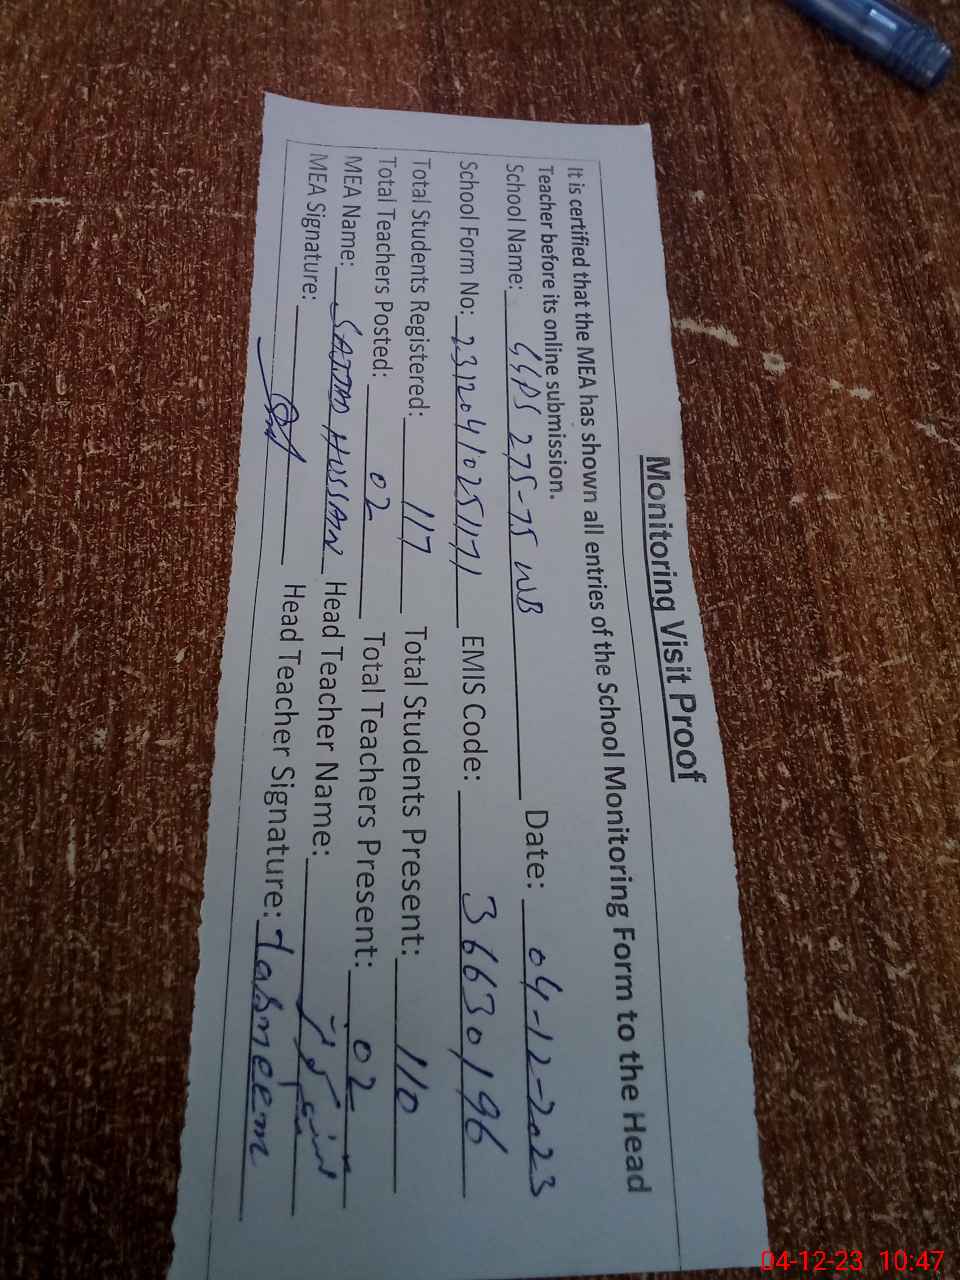 Monitoring Visit Proof
It is certified that the MEA has shown all entries of the School Monitoring Form to the Head
Teacher before its online submission.
School Name: GGPS 275-75 WB Date: 04-12-2023
School Form No: 231204102517171 EMIS Code: 36630196
Total Students Registered: 117 Total Students Present: 110
Total Teachers Posted: 02 Total Teachers Present: 02
MEA Name: SAJJAD HUSSAIN Head Teacher Name:
MEA Signature: Head Teacher Signature: Tasneem
04-12-23 10:47